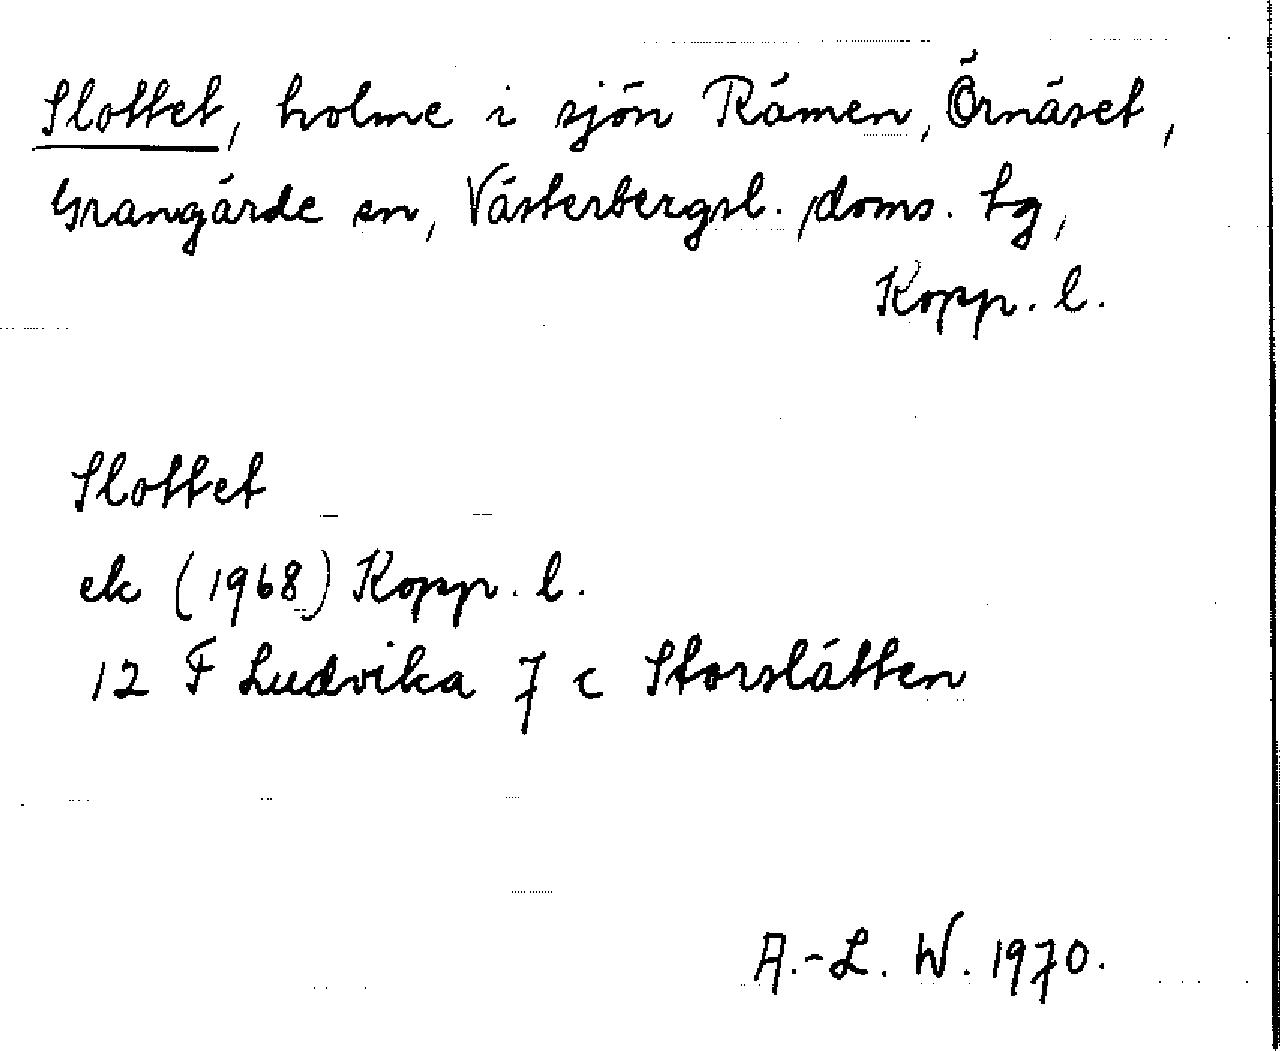 Slottet, holme i sjön Rämen, Örnäset,
Grangärde sn, Västerbergsl. doms. tg,
Kopp. l.
Slottet
ek (1968) Kopp. l.
12 F Ludvika 7 c Storslätten
A.-L. W. 1970.